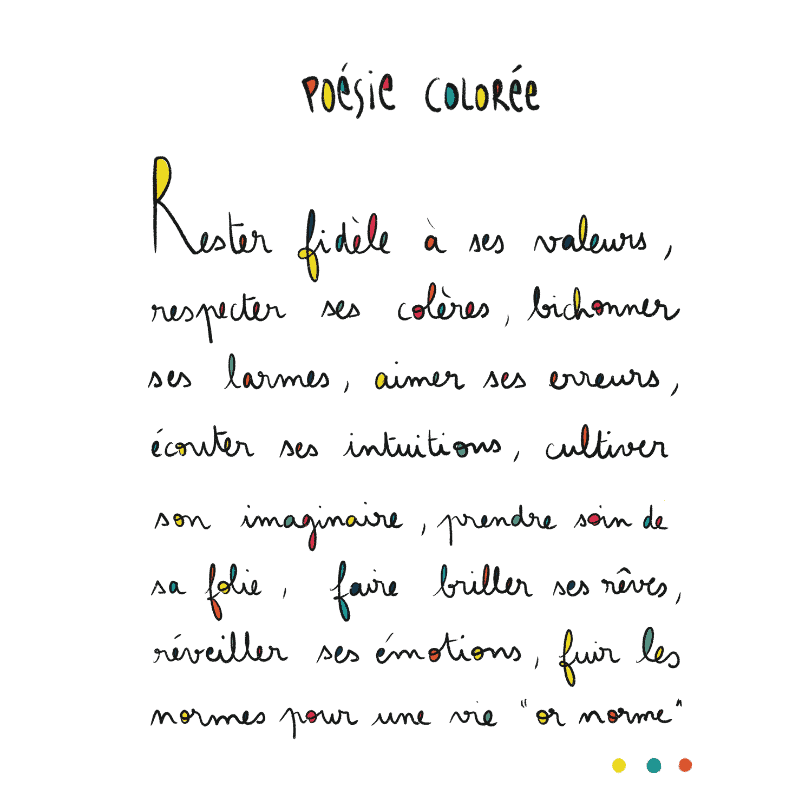 POÉSIE COLORÉE
Rester fidèle à ses valeurs,
respecter ses colères, bichonner
ses larmes, aimer ses erreurs,
écouter ses intuitions, cultiver
son imaginaire, prendre soin de
sa folie, faire briller ses rêves,
réveiller ses émotions, fuir les
normes pour une vie "or norme"